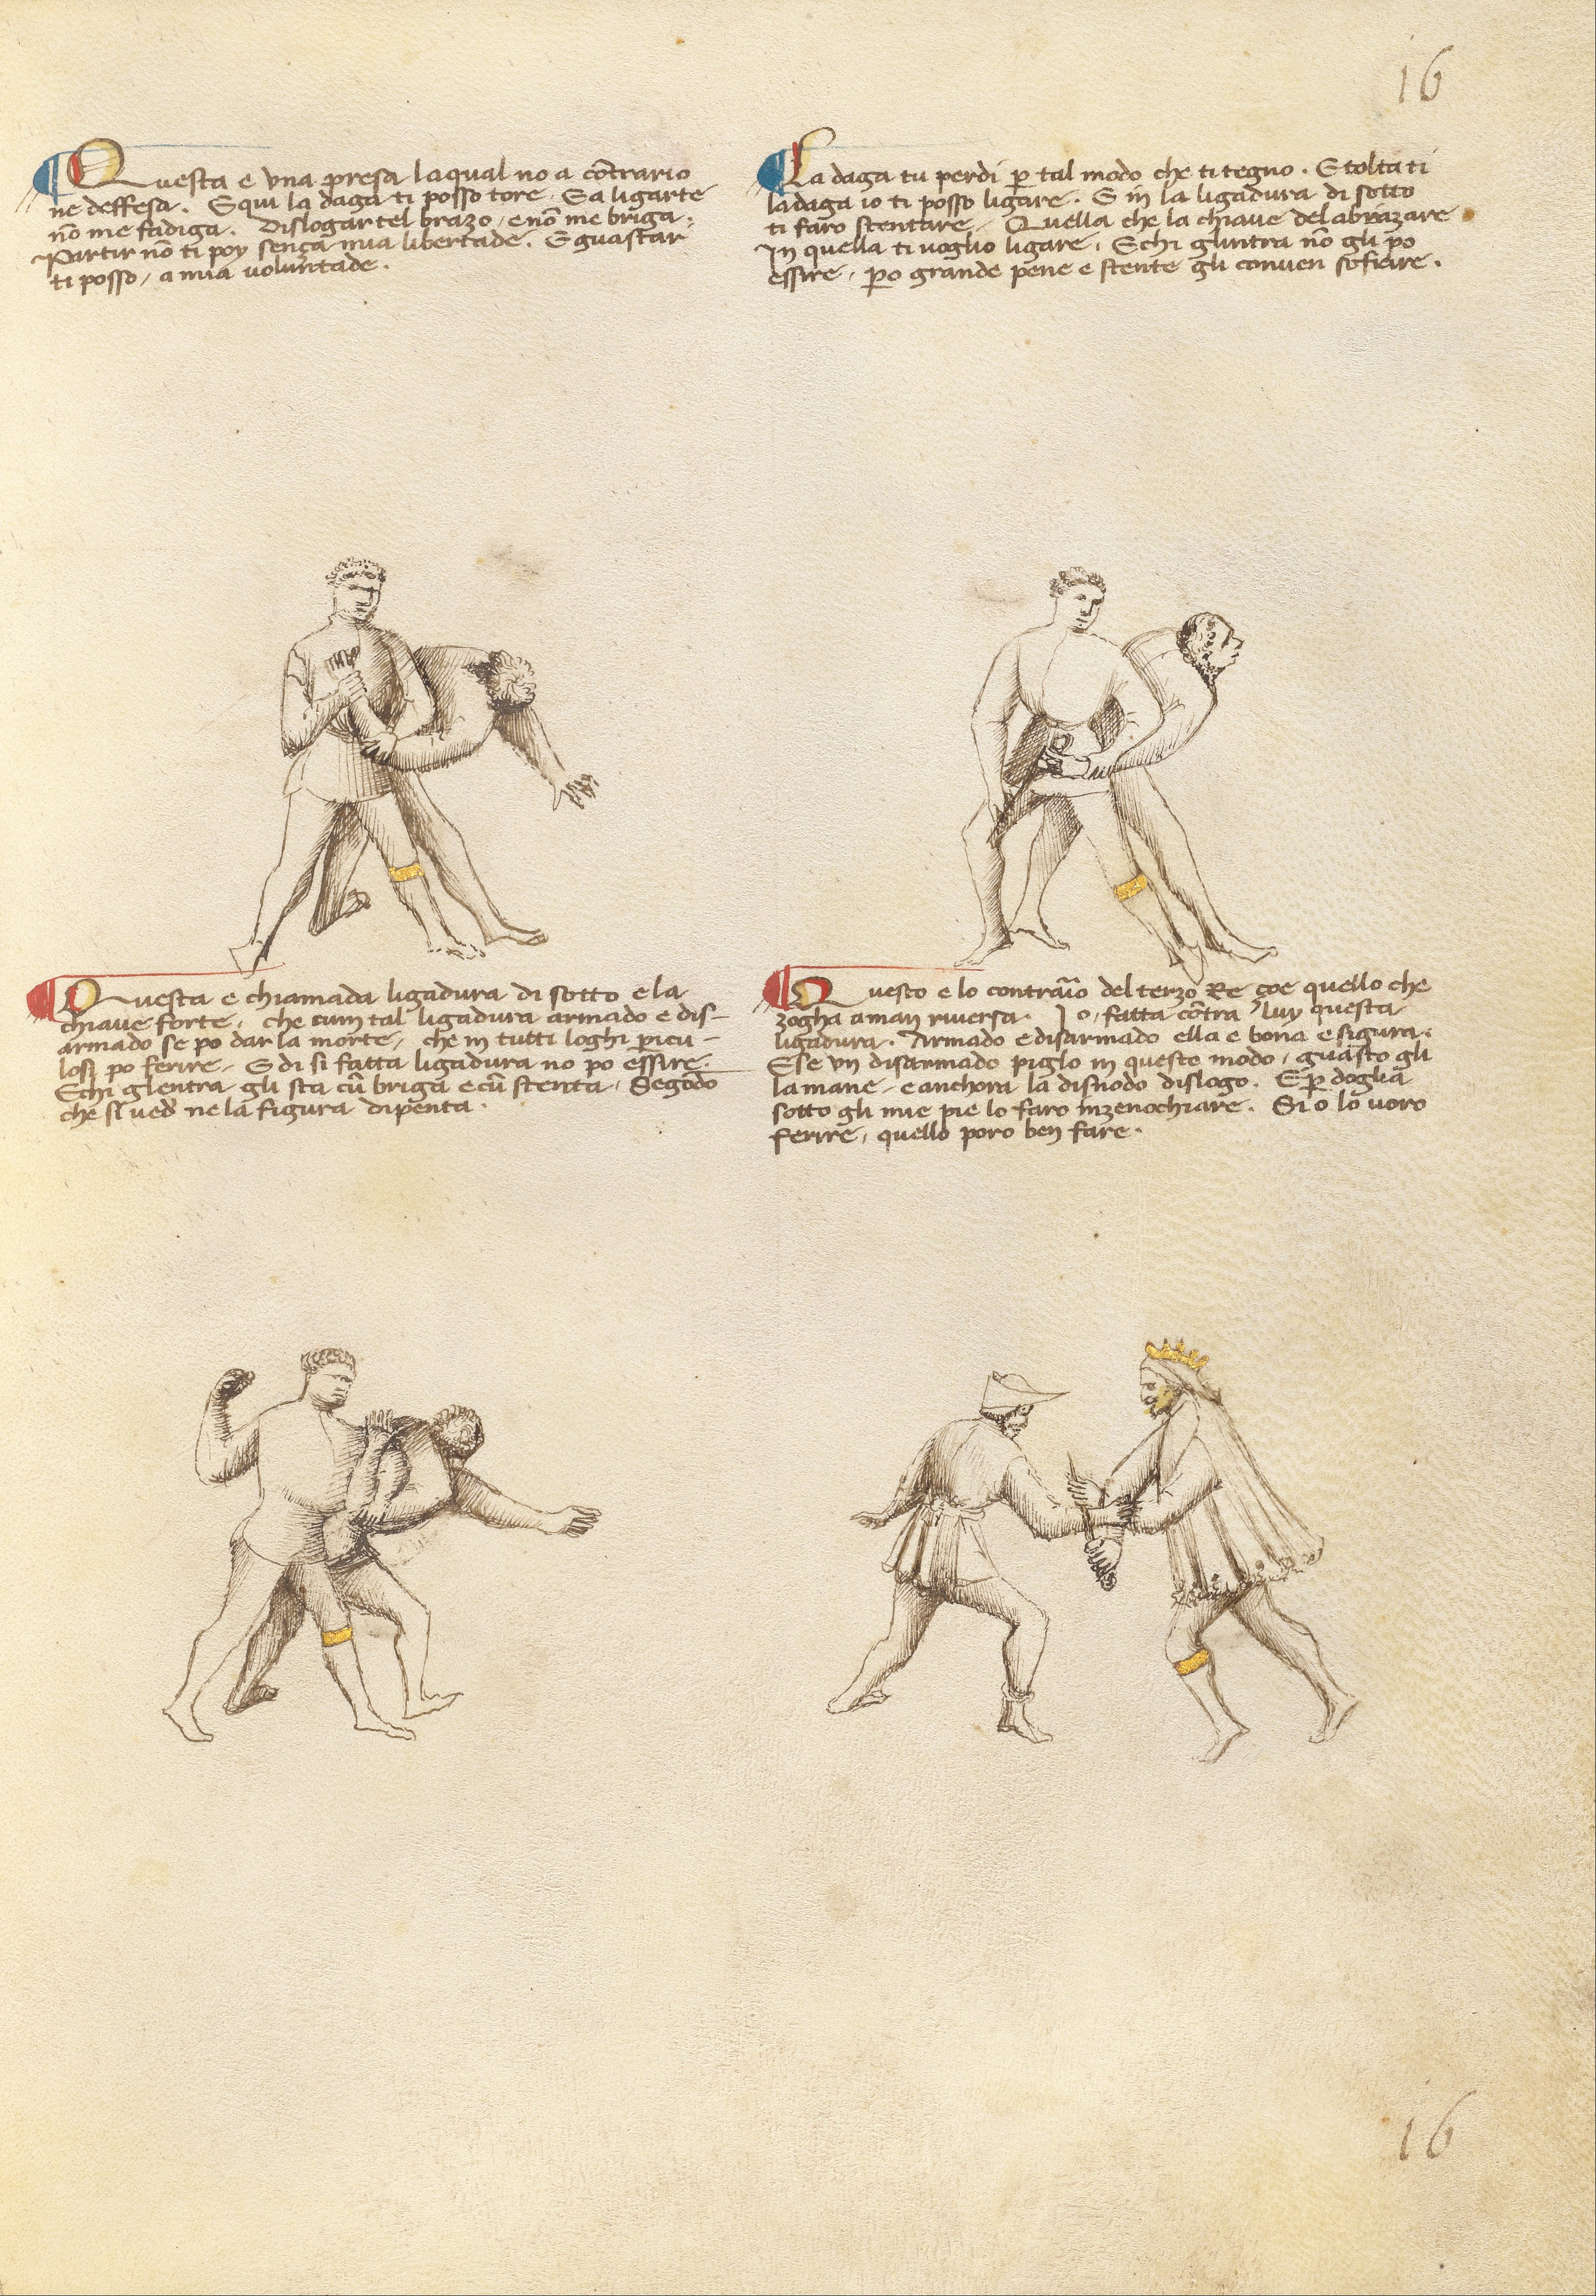 16
Questa e una presa laqual no a cõtrario
ne deffesa. E qui la daga ti posso tore. E a ligarte
nõ me fadiga. dislogartel brazo, e nõ me briga.
Partir nõ ti poy senza mia libertade. E guastar
ti posso, a mia voluntade.
La daga tu perdi p tal modo che ti tegno. E tolta ti
la daga io ti posso ligare. E in la ligadura di sotto
ti faro stentare. Quella che la chiave del abrazare
In quella ti voglio ligare. E chi glintra nõ gli po
essire, po grande pene e stente gli conven sofrire.
Questa e chiamada ligadura di sotto e la
chiave forte, che cum tal ligadura armado e dis-
armado se po dar la morte, che in tutti loghi picu-
losi po ferire. E di si fatta ligadura no po essire.
E chi glentra gli sta cũ briga e cũ stenta, Segõdo
che si ved ne la figura dipenta.
Questo e lo contraio del terzo Re çoe quello che
zogha a man riversa. Io, fatta cõtra luy questa
ligadura. Armado e disarmado ella e bona e sigura.
E se un disarmado piglo in questo modo, guasto gli
la mane, e anchora la disnodo dislogo. E p doglia
sotto gli mie pie lo faro inzenochiare. Si o lo voro
ferire, quello poro ben fare.
16